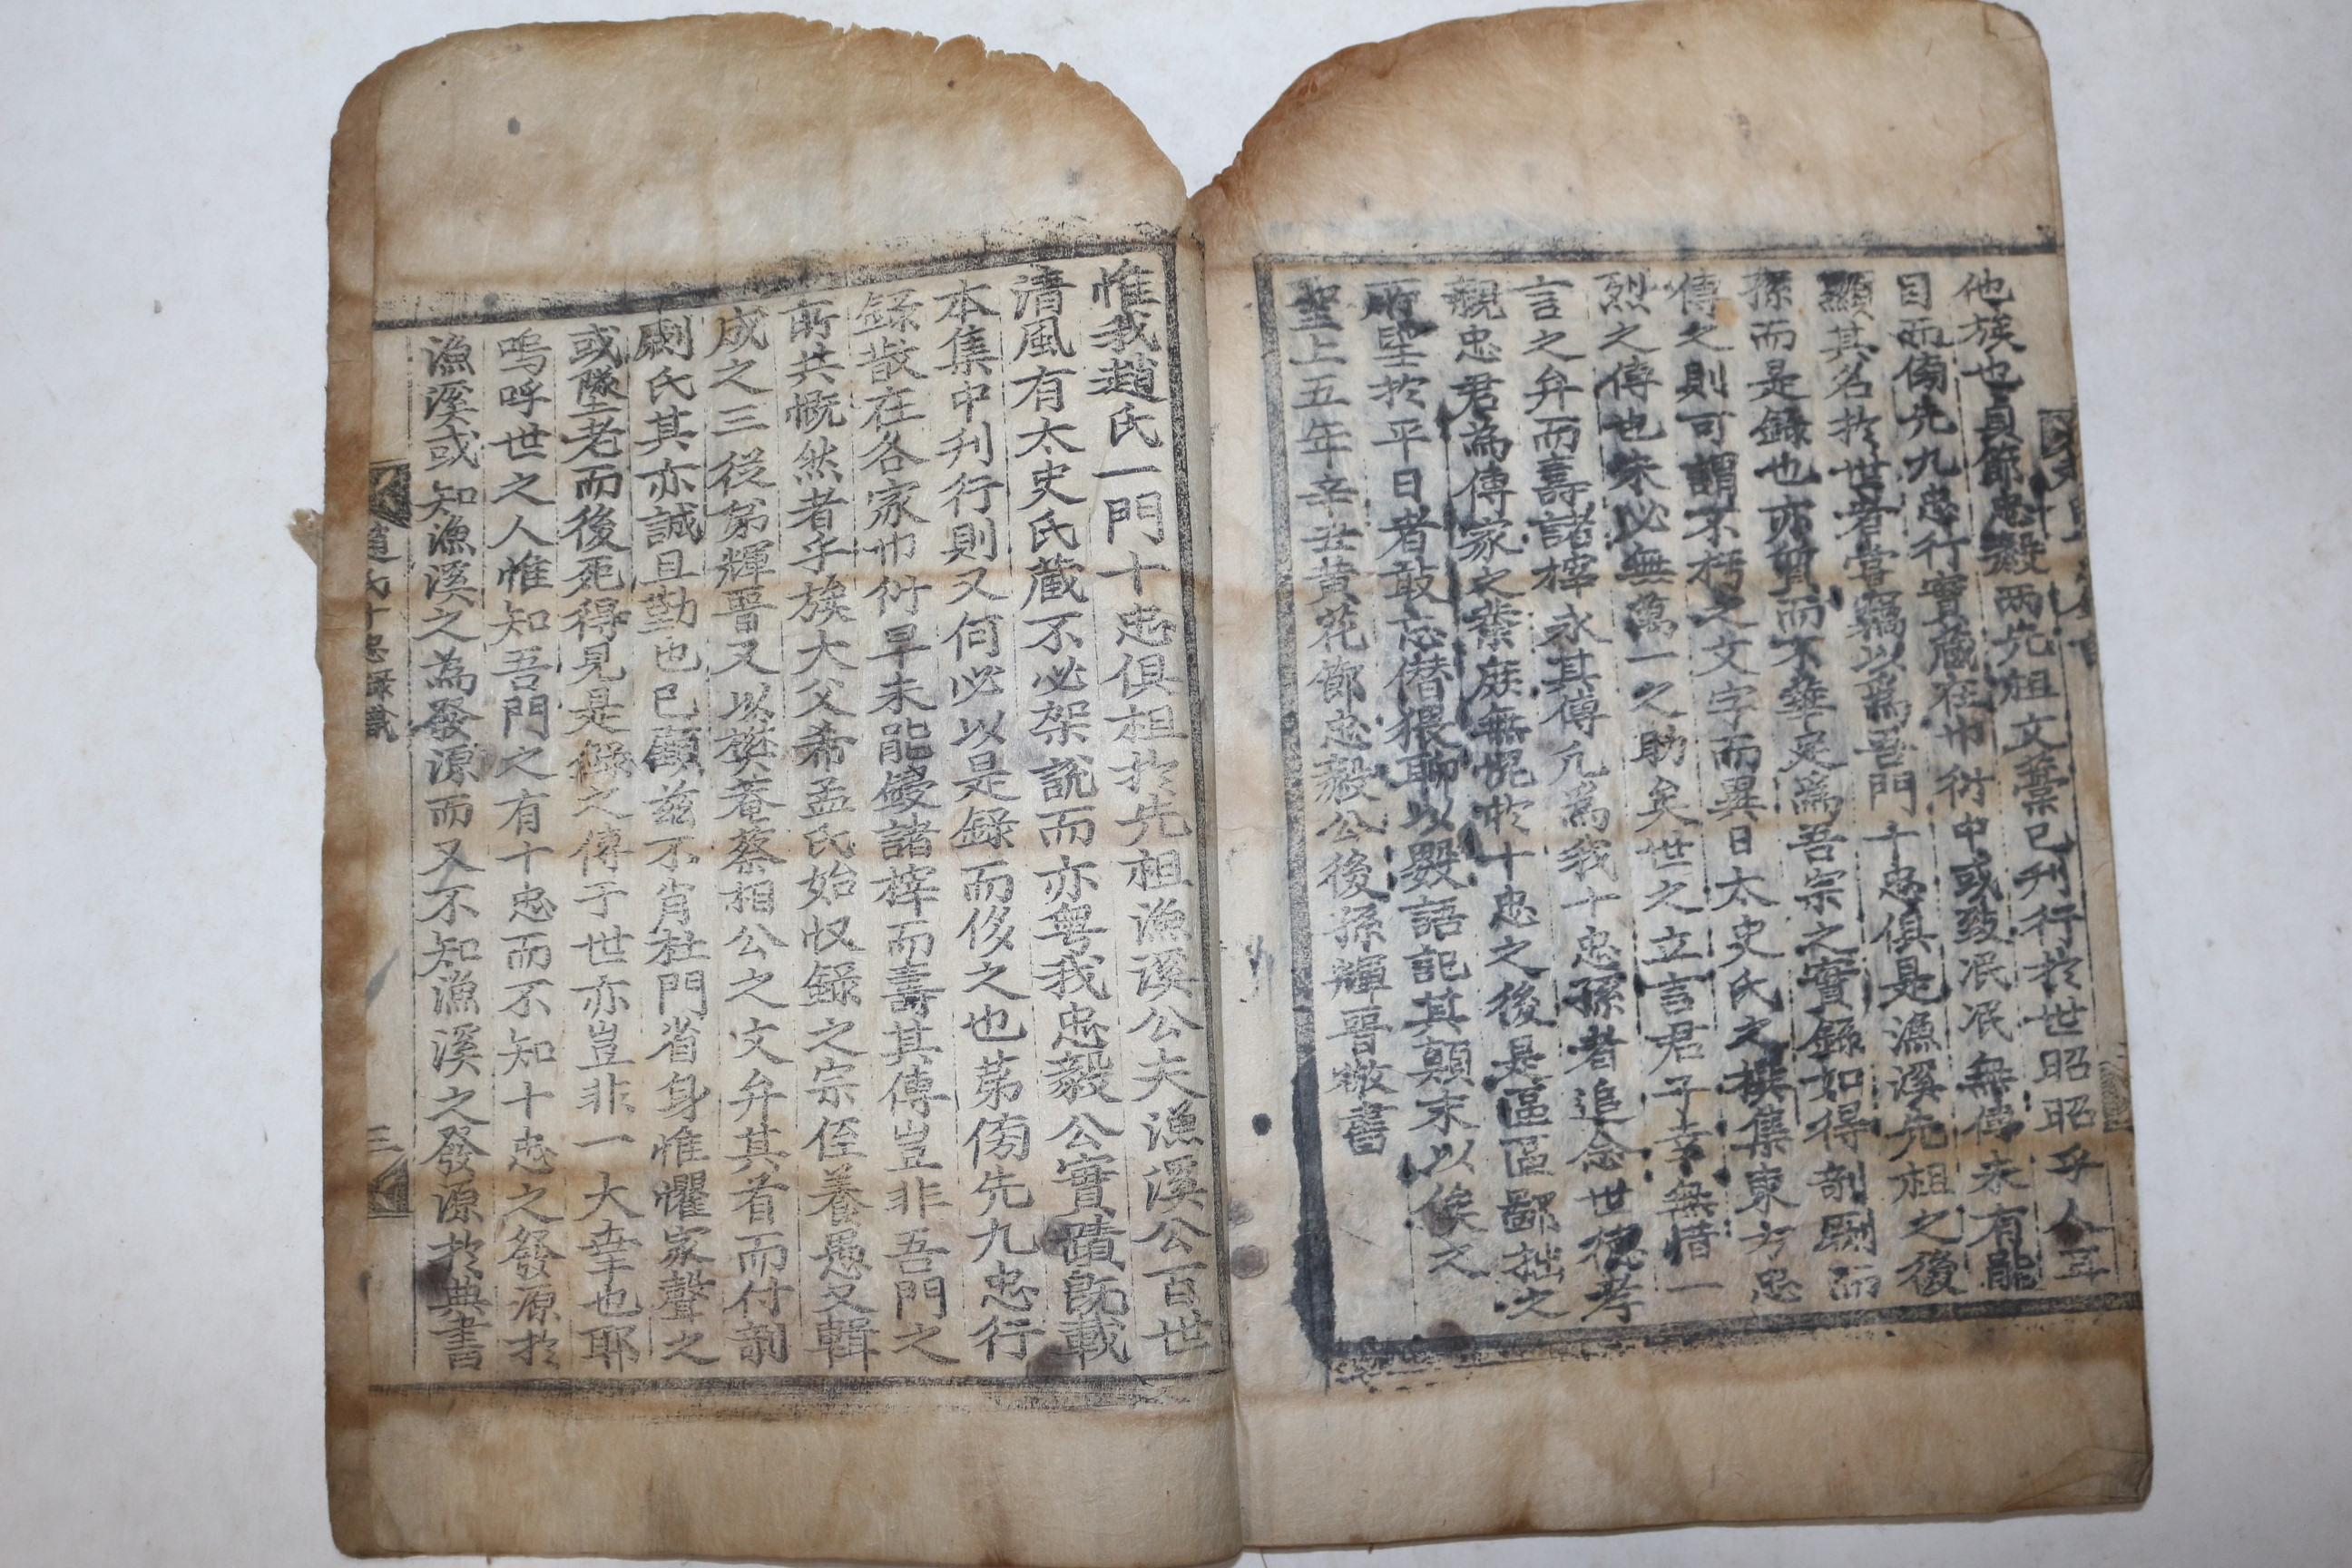 他族也貞節忠毅兩先祖文藁已刊行於世昭昭乎人耳
目而傍先九忠行實藏在巾衍中或致泯泯無傳未有能
顯其名於世者嘗竊以爲吾門十忠俱是漁溪先祖之後
孫而是錄也亦質而不華定爲吾宗之實錄如得剞劂而
傳之則可謂不朽之文字而異日太史氏之撰集東方忠
烈之傳也未必無萬一之助矣世之立言君子幸無惜一
言之弁而壽諸梓永其傳凡爲我十忠孫者追念世德孝
親忠君為傳家之業庶無愧於十忠之後是區區鄙拙之
所望於平日者敢忘僭猥聊以數語記其顚末以俟之
聖上五年辛丑黃花節忠毅公後孫輝晋敬書
惟我趙氏一門十忠俱祖於先祖漁溪公夫漁溪公百世
清風有太史氏蔵不必架說而亦粤我忠毅公實蹟旣載
本集中刋行則又何必以是錄而侈之也苐傍先九忠行
錄散在各家巾衍早未能鋟諸梓而壽其傳豈非吾門之
所共慨然者乎族大父希孟氏始収錄之宗侄養愚又輯
成之三從弟輝晋又以蔡相公之文弁其首而付剞
劂氏其亦誠且勤也已顧玆不肖杜門省身惟懼家聲之
或墜老而後死得見是錄之傳于世亦豈非一大幸也耶
嗚呼世之人惟知吾門之有十忠而不知十忠之發源於
漁溪或知漁溪之為發源而又不知漁溪之發源於典書
趙氏十忠錄識
三